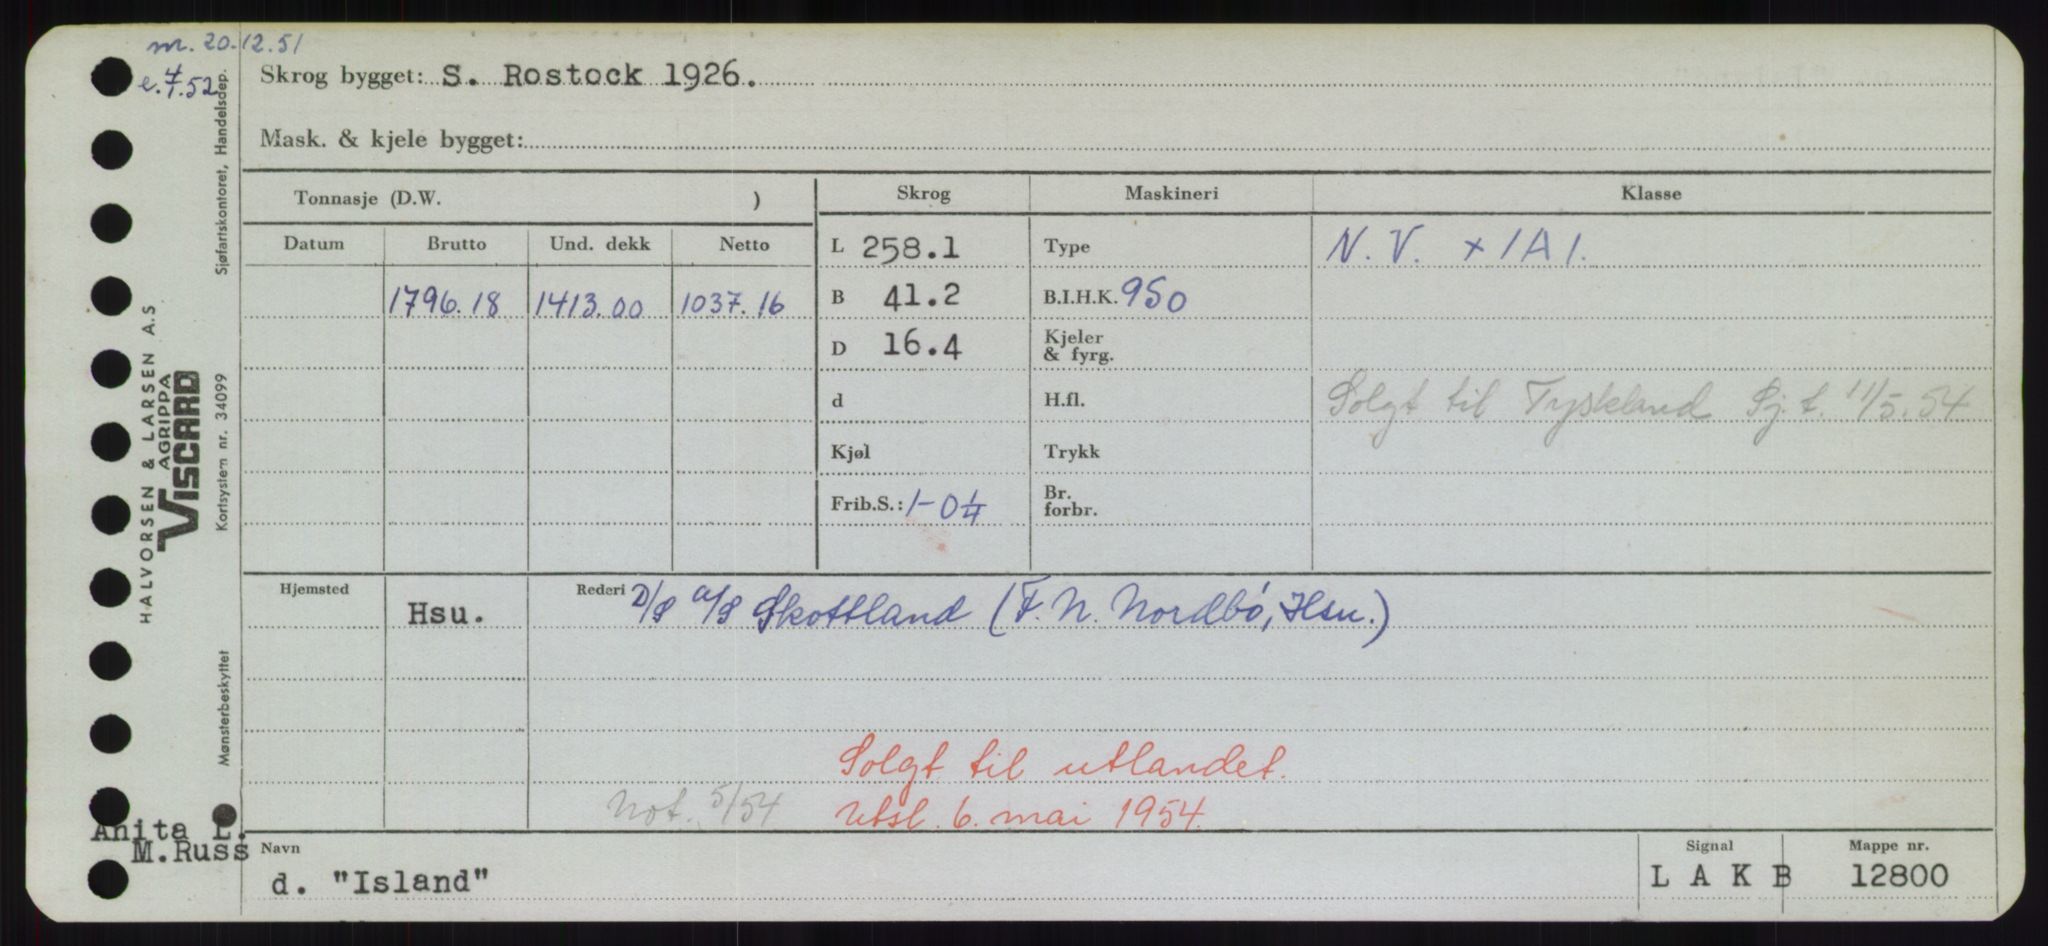 m. 20.12.51
e. 4/7.52
Skrog bygget: S. Rostock 1926.
Mask. & kjele bygget:
Tonnasje (D.W. )
Skrog Maskineri Klasse
Datum Brutto Und. dekk Netto
L 258.1 Type N. V. + 1A1.
1796.18 1413.00 1037.16 B 41.2 B.I.H.K. 950
D 16.4 Kjeler & fyrg.
d H.fl. Solgt til Tyskland Sj.t. 11/5.54
Kjøl Trykk
Frib.S.: 1-04 Br. forbr.
Hjemsted Hsu. Rederi D/S A/S Skottland (F. N. Nordbö, Hsu.)
Solgt til utlandet.
Not. 5/54 Utsl. 6. mai 1954.
Navn Signal Mappe nr.
d. "Island" L A K B 12800
Anita L.
M.Russ
HALVORSEN & LARSEN A.S
AGRIPPA
VISCARD
Sjøfartskontoret, Handelsdep.
Kortsystem nr. 34099
Mønsterbeskyttet